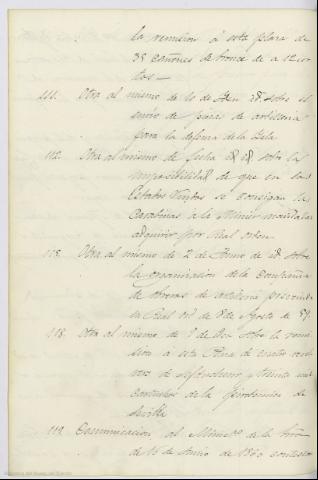 la remision á esta plaza de
38 cañones de bronce de a 12 cor
tos —
111. Otra al mismo de 10 de id. sobre el
envio de piezas de artilleria
para la defensa de la Isla
112. Otra al mismo de fecha id. id. sobre la
imposibilidad de que en los
Estados Unidos se consigan las
Carabinas a la Minié mandadas
adquirir por Real orden
113. Otra al mismo de 2 de Junio de id. sobre
la organizacion de la Compañia
de obreros de artilleria
la Real orn. de 8 de Agosto de 59.
118. Otra al mismo de 9 de sobre la remi
sion a esta Plaza de cuatro
de y treinta mil
cartuchos de la pirotecnia de
Sevilla
119. Comunicacion al Minro. de la
de 16 de Junio de 1860